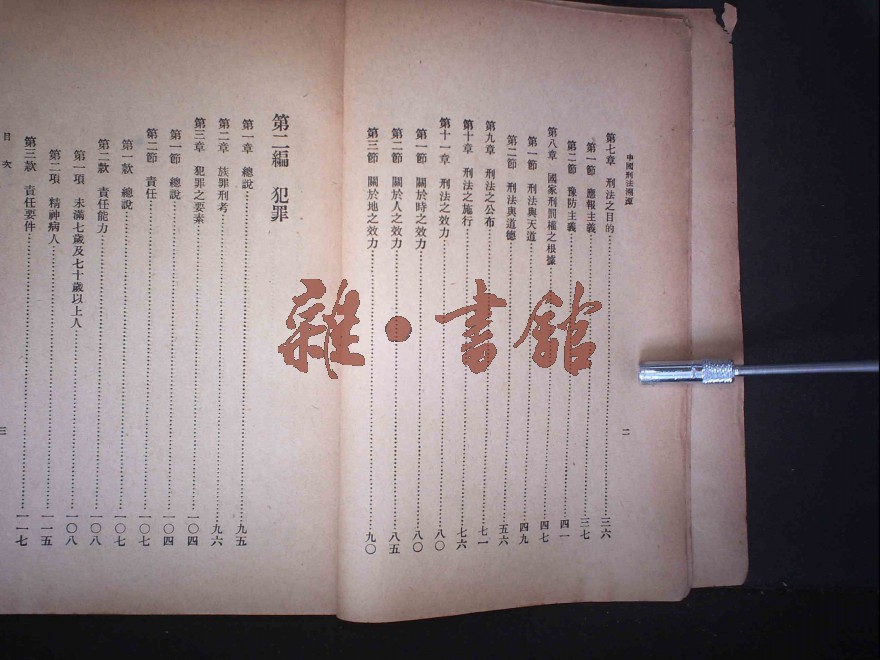 中國刑法溯源
第七章 刑法之目的 三六
第一節 應報主義 三七
第二節 豫防主義 四一
第八章 國家刑罰權之根據 四七
第一節 刑法與天道 四九
第二節 刑法與道德 五六
第九章 刑法之公布 七一
第十章 刑法之施行 七六
第十一章 刑法之效力 八〇
第一節 關於時之效力 八〇
第二節 關於人之效力 八五
第三節 關於地之效力 九〇
二
第二編 犯罪
第一章 總說 九五
第二章 族罪刑考 九六
第三章 犯罪之要素 一〇四
第一節 總說 一〇四
第二節 責任 一〇七
第一款 總說 一〇七
第二款 責任能力 一〇八
第一項 未滿七歲及七十歲以上人 一〇八
第二項 精神病人 一一五
第三款 責任要件 一一七
目次
三
雜·書館